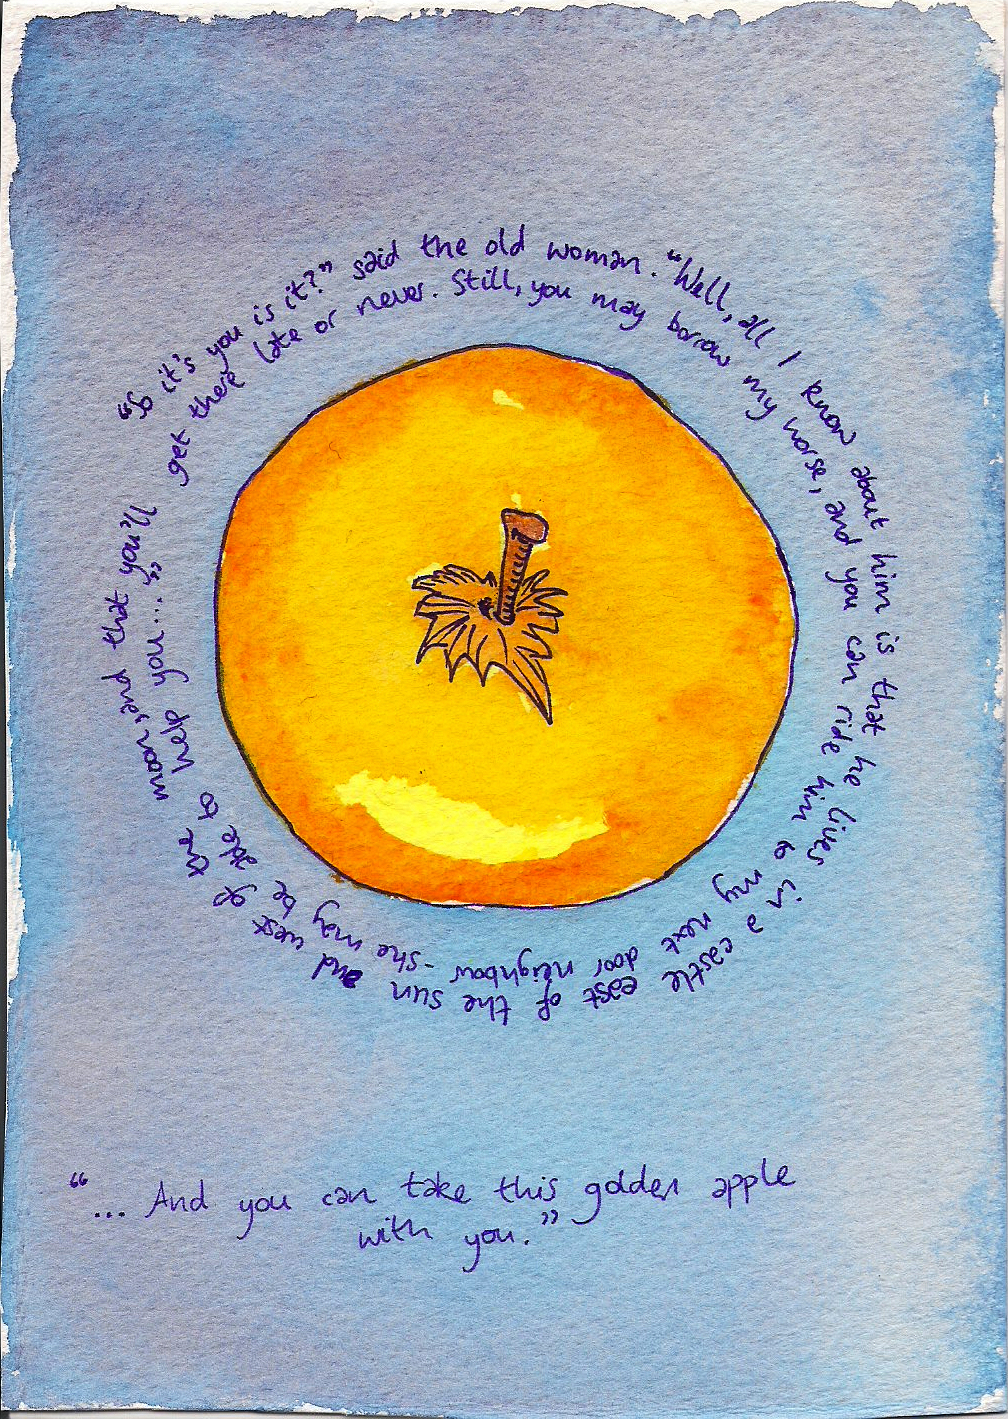 “So it's you is it?” said the old woman. “Well, all I know about him is that he lives in a castle east of the sun and west of the moon, and that you'll
get there late or never. Still, you may borrow my horse, and you can ride him to my next door neighbour - she may be able to help you...”
“... And you can take this golden apple
with you.”